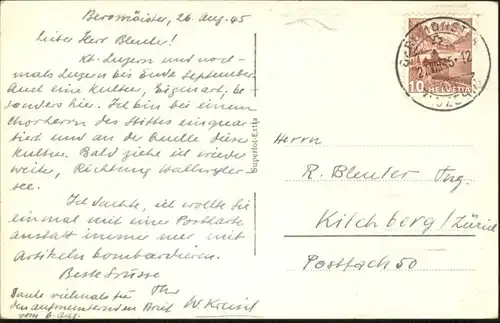 Beromüister, 26. Aug. 45
Lieber Herr Bleuler!
Kt. Luzern und noch-
mals Luzern bis Ende September.
Auch eine Kultur, Eigenart, be-
sonders hier. Ich bin bei einem
Chorherrn des Stiftes einquar-
tiert und an der Quelle dieser
Kultur. Bald ziehe ich wieder
weiter, Richtung Hallwyler-
see.
Ich dachte, ich wollte Sie
einmal mit einer Postkarte
anstatt immer nur mit
Artikeln bombardieren.
Beste Grüsse
Ihr
Danke vielmals für
den aufmunternden Brief
vom 6. Aug.
Supertol-Extra
10 HELVETIA
Herrn
R. Bleuler Ing.
Kilchberg/Zürich
Postfach 50